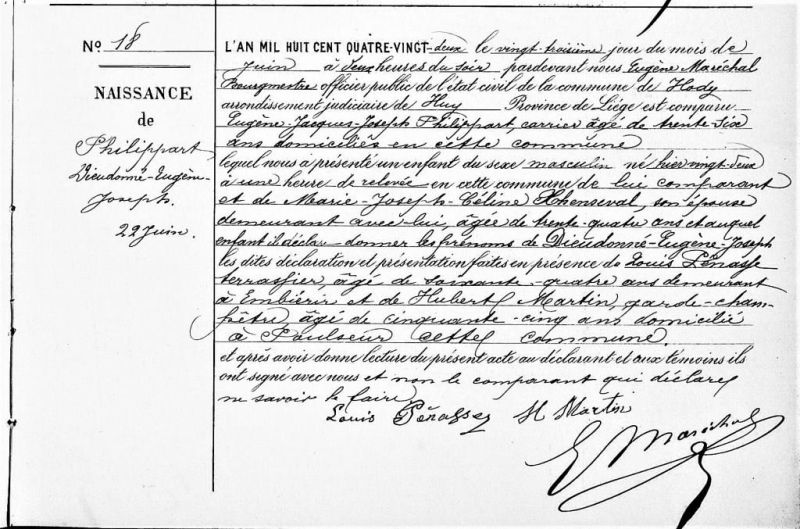 N° 18
NAISSANCE
de
Philippart
Dieudonné-Eugène-
Joseph.
22 Juin.
L'AN MIL HUIT CENT QUATRE-VINGT-deux le vingt-troisième jour du mois de
Juin à deux heures du soir pardevant nous Eugène Maréchal
Bourgmestre officier public de l'état civil de la commune de Hody
arrondissement judiciaire de Huy Province de Liége est comparu
Eugène-Jacques-Joseph Philippart, carrier âgé de trente-six
ans domiciliés en cette commune
lequel nous a présenté un enfant du sexe masculin né hier vingt-deux
à une heure de relevée en cette commune de lui comparant
et de Marie-Joseph-Céline Xhenseval, son épouse
demeurant avec lui, âgée de trente-quatre ans et auquel
enfant il déclare donner les prénoms de Dieudonné-Eugène-Joseph
les dites déclaration et présentation faites en présence de Louis Pénasse
terrassier, âgé de soixante-quatre ans demeurant
à Embierir et de Hubert Martin, garde-cham-
pêtre âgé de cinquante-cinq ans domicilié
à Poulseur cette commune,
et après avoir donné lecture du présent acte au déclarant et aux témoins ils
ont signé avec nous et non le comparant qui déclare
ne savoir le faire
Louis Pénasse H Martin
E Maréchal